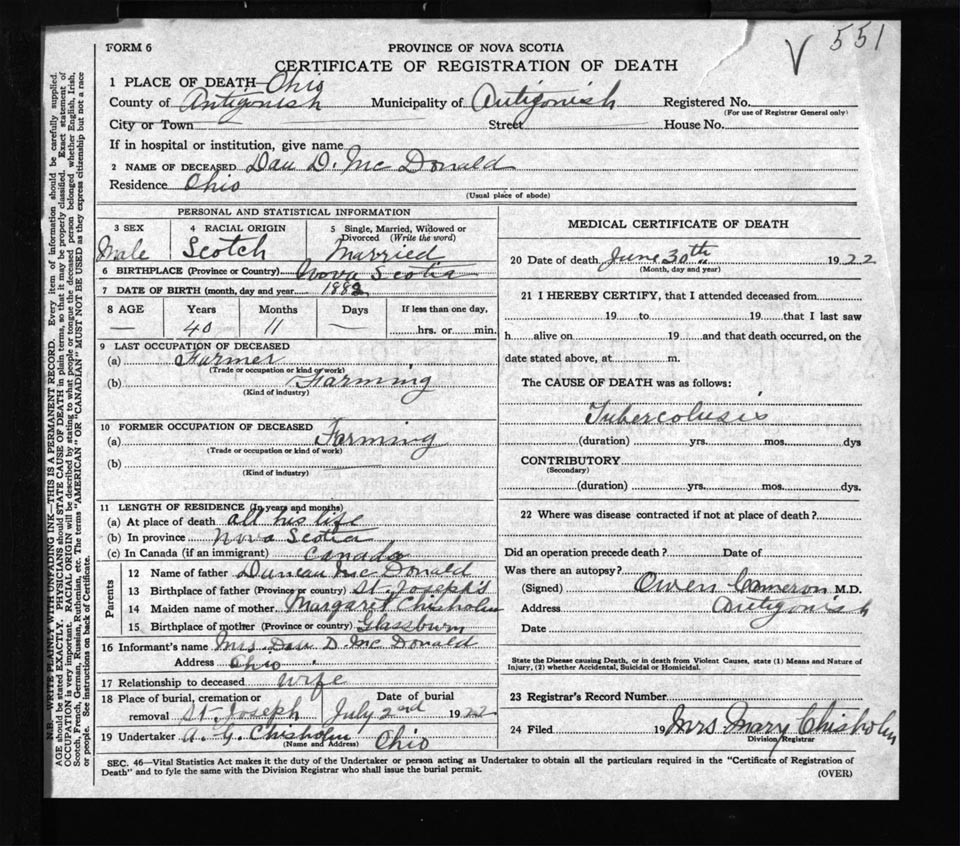 FORM 6
PROVINCE OF NOVA SCOTIA
V 551
CERTIFICATE OF REGISTRATION OF DEATH
1 PLACE OF DEATH Ohio
County of Antigonish Municipality of Antigonish Registered No.
(For use of Registrar General only)
City or Town Street House No.
If in hospital or institution, give name
2 NAME OF DECEASED Dan D. Mc Donald
Residence Ohio
(Usual place of abode)
PERSONAL AND STATISTICAL INFORMATION
3 SEX 4 RACIAL ORIGIN 5 Single, Married, Widowed or Divorced (Write the word)
Male Scotch Married
6 BIRTHPLACE (Province or Country) Nova Scotia
7 DATE OF BIRTH (month, day and year 1882
8 AGE Years Months Days If less than one day,
— 40 11 — hrs. or min.
9 LAST OCCUPATION OF DECEASED
(a) Farmer
(Trade or occupation or kind of work)
(b) Farming
(Kind of industry)
10 FORMER OCCUPATION OF DECEASED
(a) Farming
(Trade or occupation or kind of work)
(b) —
(Kind of industry)
11 LENGTH OF RESIDENCE (In years and months)
(a) At place of death all his life
(b) In province Nova Scotia
(c) In Canada (if an immigrant) Canada
Parents
12 Name of father Duncan Mc Donald
13 Birthplace of father (Province or country) St. Joseph's
14 Maiden name of mother Margaret Chisholm
15 Birthplace of mother (Province or country) Glassburn
16 Informant's name Mrs. Dan D. Mc Donald
Address Ohio
17 Relationship to deceased wife
18 Place of burial, cremation or removal St Joseph Date of burial July 2nd 1922
19 Undertaker A. G. Chisholm Ohio
(Name and Address)
MEDICAL CERTIFICATE OF DEATH
20 Date of death June 30th 1922
(Month, day and year)
21 I HEREBY CERTIFY, that I attended deceased from
19 to 19 that I last saw
h alive on 19 and that death occurred, on the
date stated above, at m.
The CAUSE OF DEATH was as follows:
Tubercolusis
(duration) yrs. mos. dys
CONTRIBUTORY
(Secondary)
(duration) yrs. mos. dys.
22 Where was disease contracted if not at place of death?
Did an operation precede death? Date of
Was there an autopsy?
(Signed) Owen Cameron M.D.
Address Antigonish
Date
State the Disease causing Death, or in death from Violent Causes, state (1) Means and Nature of
Injury, (2) whether Accidental, Suicidal or Homicidal.
23 Registrar's Record Number
24 Filed 19 Mrs Mary Chisholm
Division Registrar
SEC. 46—Vital Statistics Act makes it the duty of the Undertaker or person acting as Undertaker to obtain all the particulars required in the "Certificate of Registration of
Death" and to fyle the same with the Division Registrar who shall issue the burial permit.
(OVER)
N.B. WRITE PLAINLY WITH UNFADING INK—THIS IS A PERMANENT RECORD. Every item of information should be carefully supplied.
AGE should be stated EXACTLY. PHYSICIANS should STATE CAUSE OF DEATH in plain terms, so that it may be properly classified. Exact statement of
OCCUPATION is very important. RACIAL ORIGIN will be described by stating to what people or tongue the deceased person belonged whether English, Irish,
Scotch, French, German, Russian, Ruthenian, etc. The terms "AMERICAN" OR "CANADIAN" MUST NOT BE USED as they express citizenship but not a race
or people. See instructions on back of Certificate.